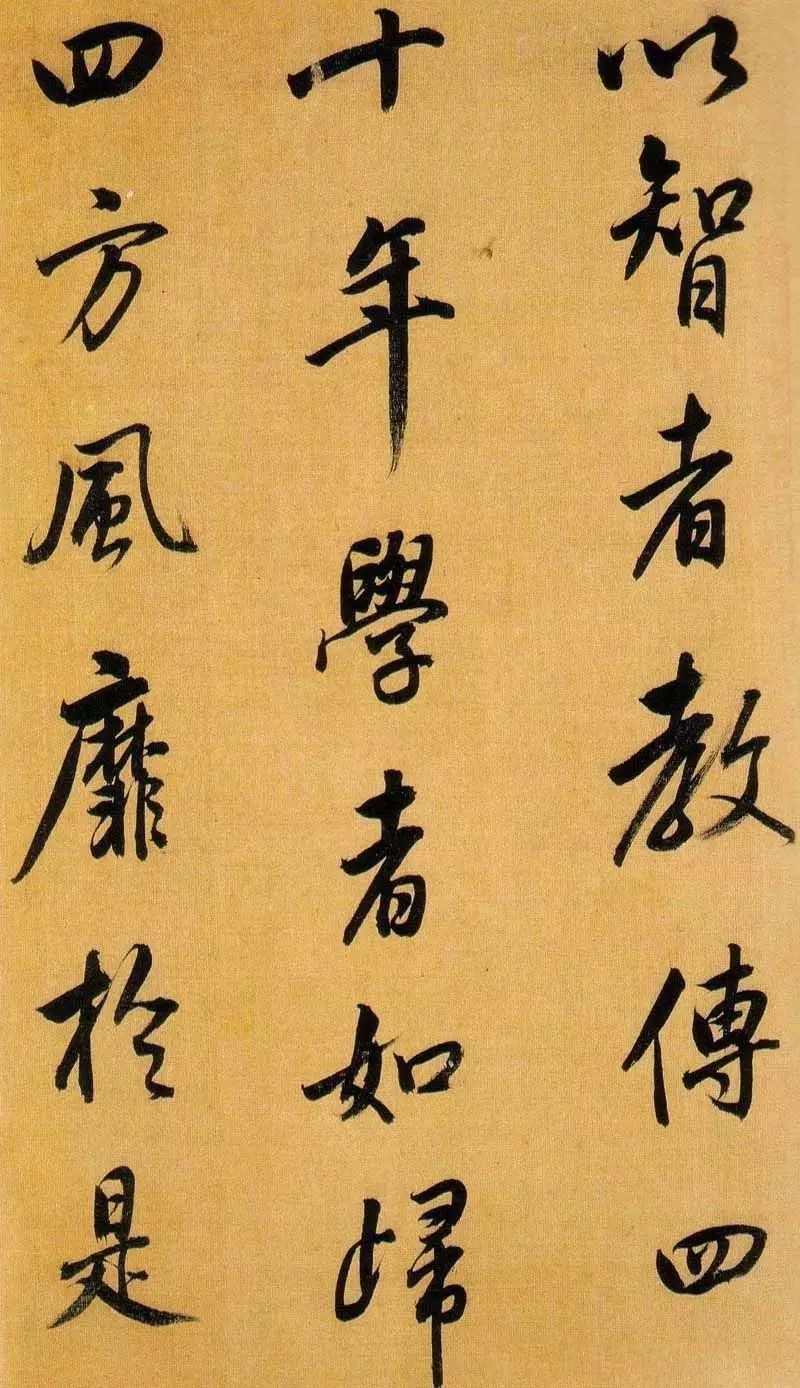 以智者教傳四
十年學者如歸
四方風靡於是